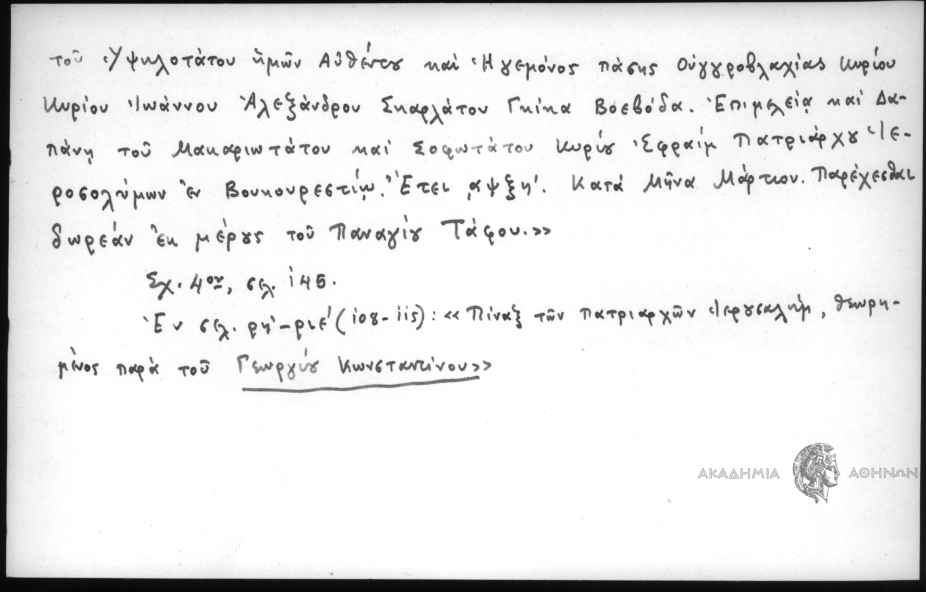 τοῦ Ὑψηλοτάτου ἡμῶν Αὐθέντου καὶ Ἡγεμόνος πάσης Οὐγγροβλαχίας Κυρίου
Κυρίου Ἰωάννου Ἀλεξάνδρου Σκαρλάτου Γκίκα Βοεβόδα. Ἐπιμελείᾳ καὶ Δα-
πάνῃ τοῦ Μακαριωτάτου καὶ Σοφωτάτου Κυρίȣ Ἐφραὶμ Πατριάρχȣ Ἱε-
ροσολύμων Ἐν Βουκουρεστίῳ. Ἔτει ͵αψξη'. Κατὰ Μῆνα Μάρτιον. Παρέχεσθαι
δωρεὰν ἐκ μέρȣς τοῦ Παναγίȣ Τάφου.»
Σχ. 4ον, σελ. 145.
Ἐν σελ. ρη'-ριε' (108-115): «Πίναξ τῶν πατριαρχῶν Ἱερȣσαλήμ, θεωρη-
μένος παρὰ τοῦ Γεωργίȣ Κωνσταντίνου»
ΑΚΑΔΗΜΙΑ ΑΘΗΝΩΝ